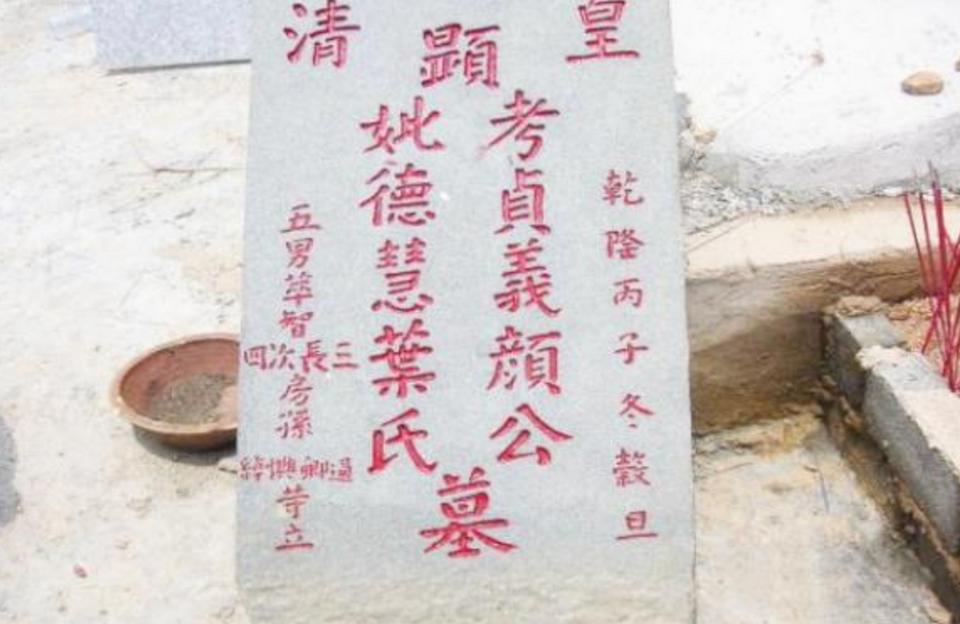 皇清
乾隆丙子冬穀旦
顯
考貞義顏公
妣德慧葉氏
墓
五男智
三長次四
房孫
卿
等立